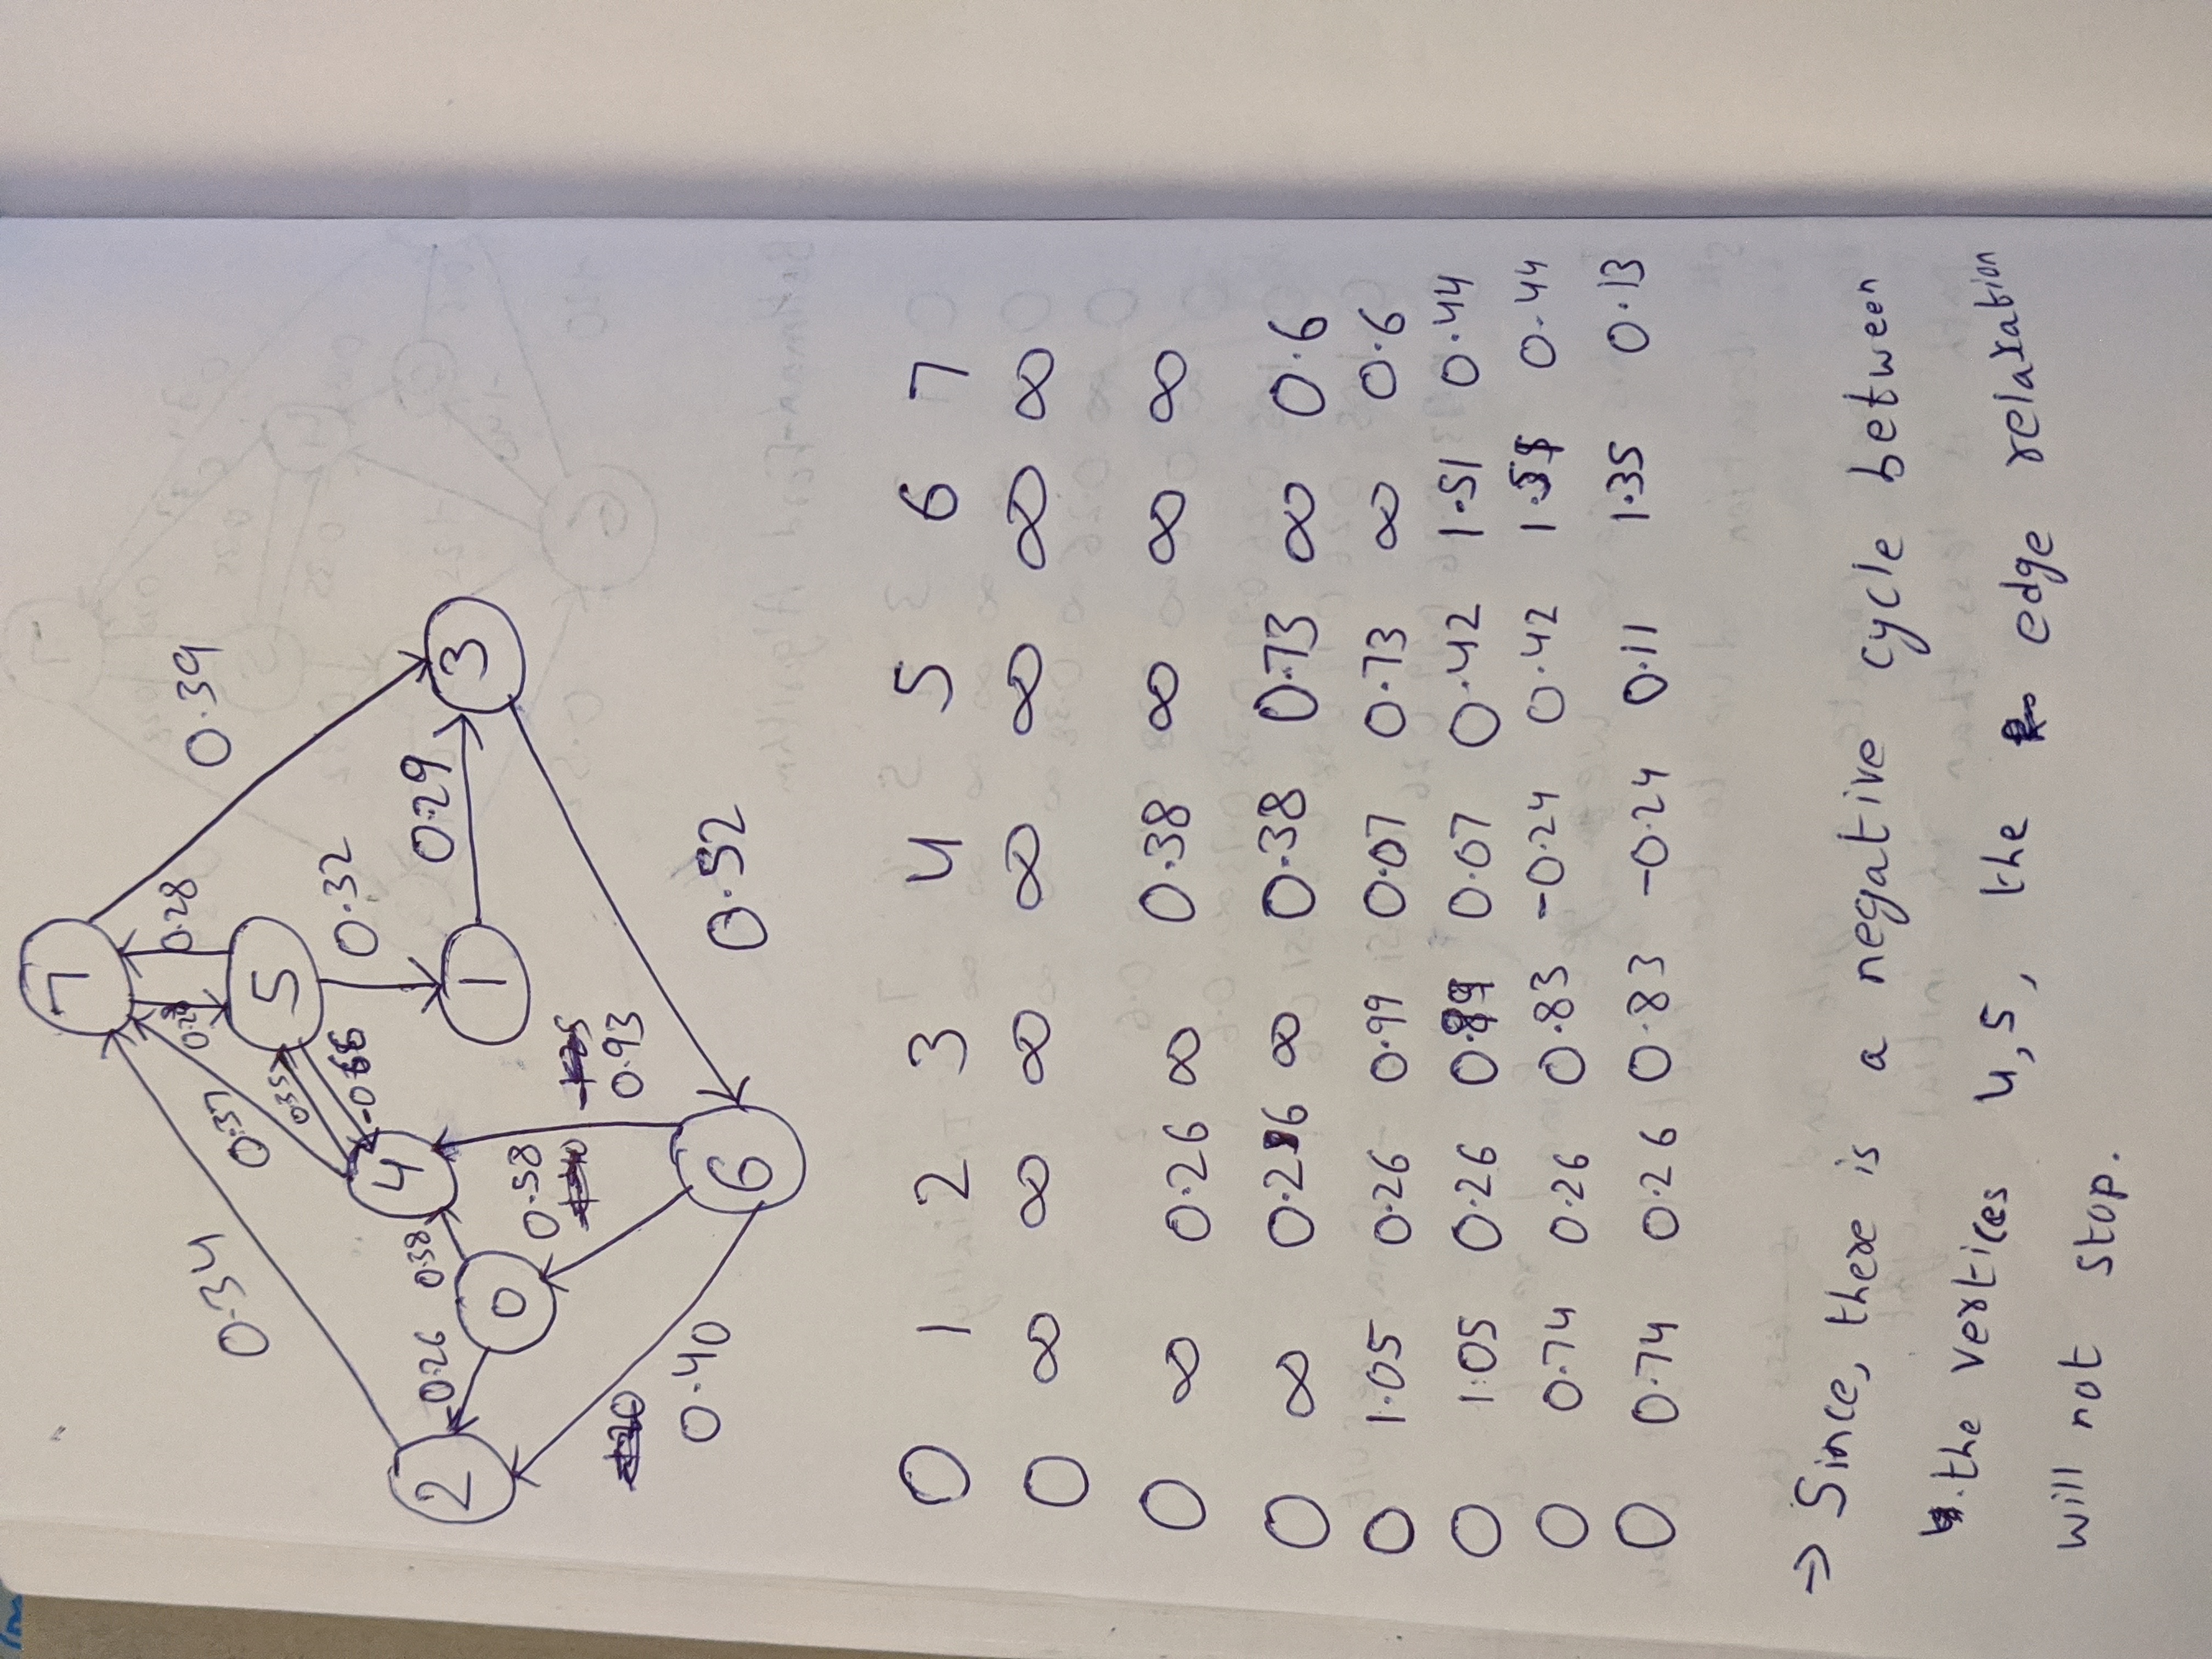 7
0.34
0.37
0.28
0.28
0.39
5
0.35
-0.66
0.32
4
2
0.26
0.38
0
1
0.29
3
0.58
0.93
0.40
6
0.52
0 1 2 3 4 5 6 7
0 ∞ ∞ ∞ ∞ ∞ ∞ ∞
0 ∞ 0.26 ∞ 0.38 ∞ ∞ ∞
0 ∞ 0.26 ∞ 0.38 0.73 ∞ 0.6
0 1.05 0.26 0.99 0.07 0.73 ∞ 0.6
0 1.05 0.26 0.07 0.42 1.51 0.44
0 0.74 0.26 0.83 -0.24 0.42 0.44
0 0.74 0.26 0.83 -0.24 0.11 1.35 0.13
→ Since, there is a negative cycle between
the vertices 4,5, the edge relaxation
will not stop.